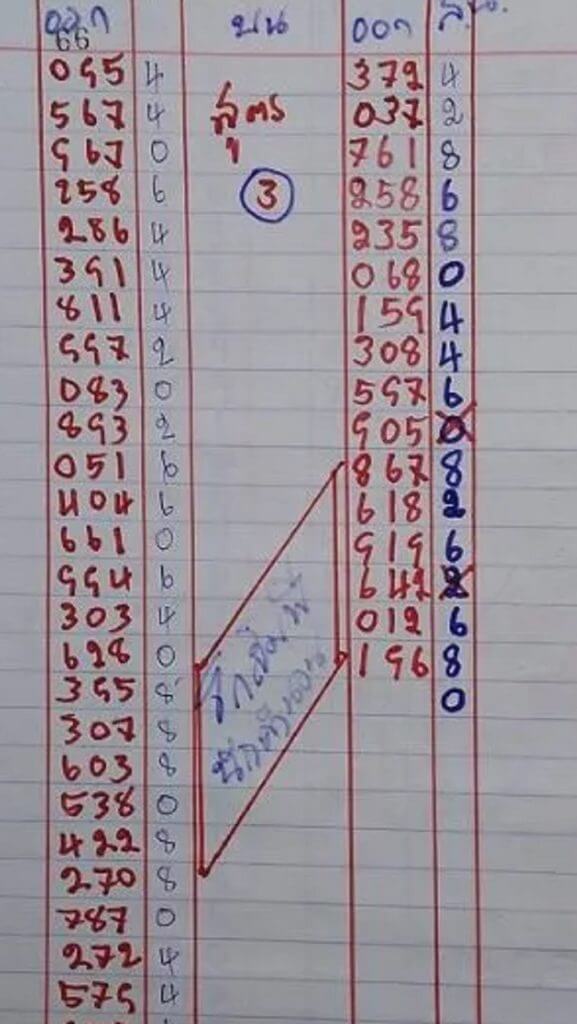 ออก บน ออก
66
095 4 สูตร 372 4
567 4 037 2
967 0 761 8
258 6 3 258 6
286 4 235 8
391 4 068 0
811 4 159 4
997 2 308 4
083 0 597 6
893 2 905 0
051 6 867 8
404 6 618 2
661 0 919 6
994 6 642 2
303 4 012 6
628 0 196 8
395 8 0
307 8
603 8
538 0
422 8
270 8
787 0
272 4
579 4